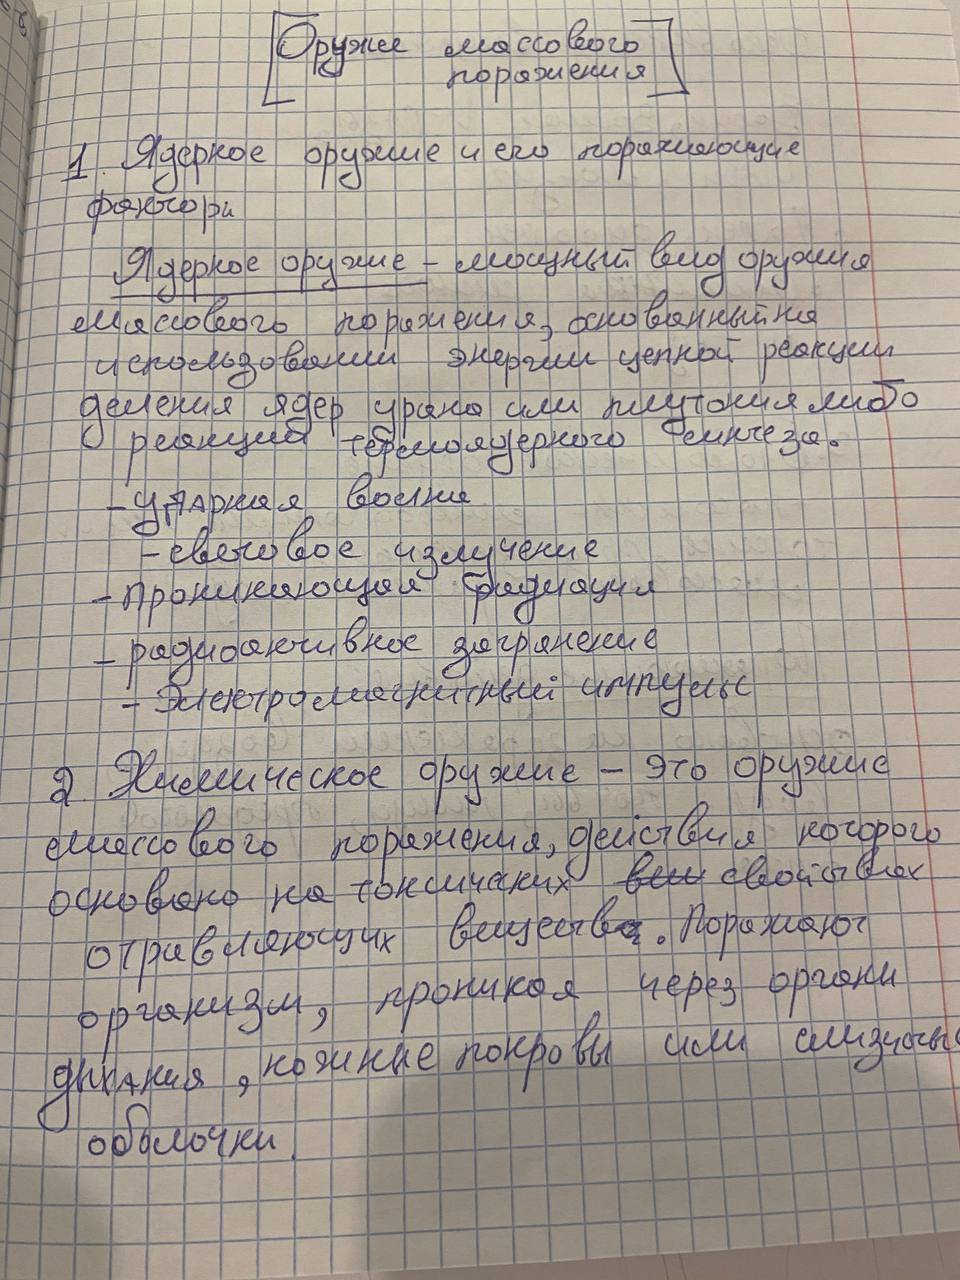 Оружие массового
поражения
1. Ядерное оружие и его поражающие
факторы
Ядерное оружие - мощный вид оружия
массового поражения, основанный на
использовании энергии цепной реакции
деления ядер урана или плутония либо
реакции термоядерного синтеза.
- ударная волна
- световое излучение
- проникающая радиация
- радиоактивное загрязнение
- Электромагнитный импульс
2. Химическое оружие - это оружие
массового поражения, действия которого
основано на токсических свойствах
отравляющих веществ. Поражают
организм, проникая через органы
дыхания, кожные покровы или слизистые
оболочки.